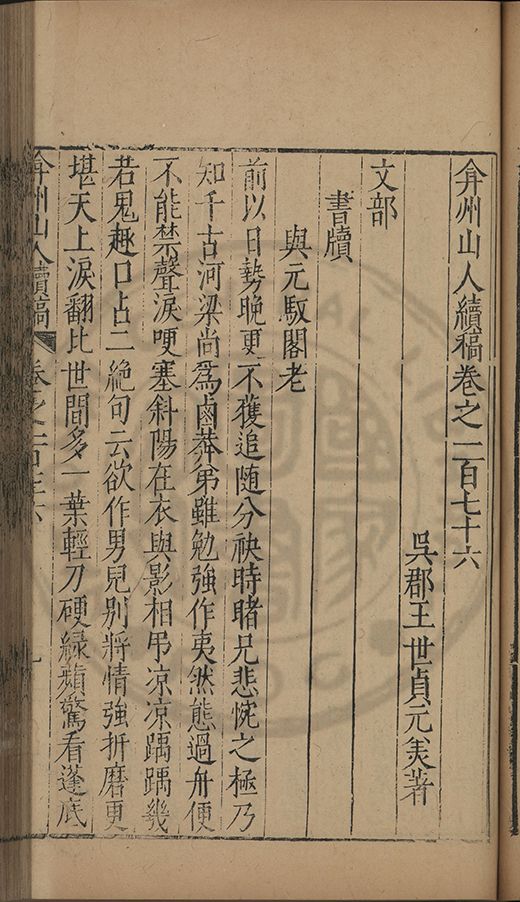 弇州山人續稿卷之一百七十六
吳郡王世貞元美著
文部
書牘
與元馭閣老
前以日勢晚更不獲追随分袂時睹兄悲惋之極乃
知千古河梁尚爲鹵莽弟雖勉強作夷然態過舟便
不能禁聲淚哽塞斜陽在衣與影相吊凉凉踽踽幾
若鬼趣口占二絶句云欲作男兒别將情強折磨更
堪天上淚翻比世間多一葉輕刀硬緑蘋驚看蓬底
弇州山人續稿